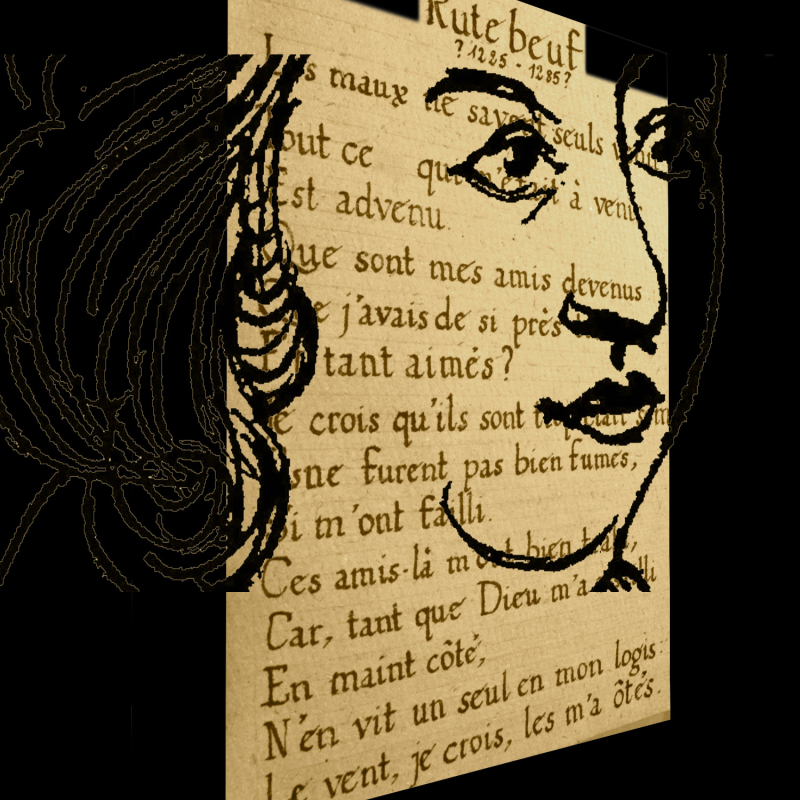 Rutebeuf
? 1225 - 1285 ?
maux ne savent seuls
out ce qui m'était à venir
Est advenu.
Que sont mes amis devenus
j'avais de si près
tant aimés ?
crois qu'ils sont
ne furent pas bien fumés,
Si m'ont failli.
Ces amis-là m'ont bien
Car, tant que Dieu m'a
En maint côté,
N'en vit un seul en mon logis:
Le vent, je crois, les m'a ôtés.